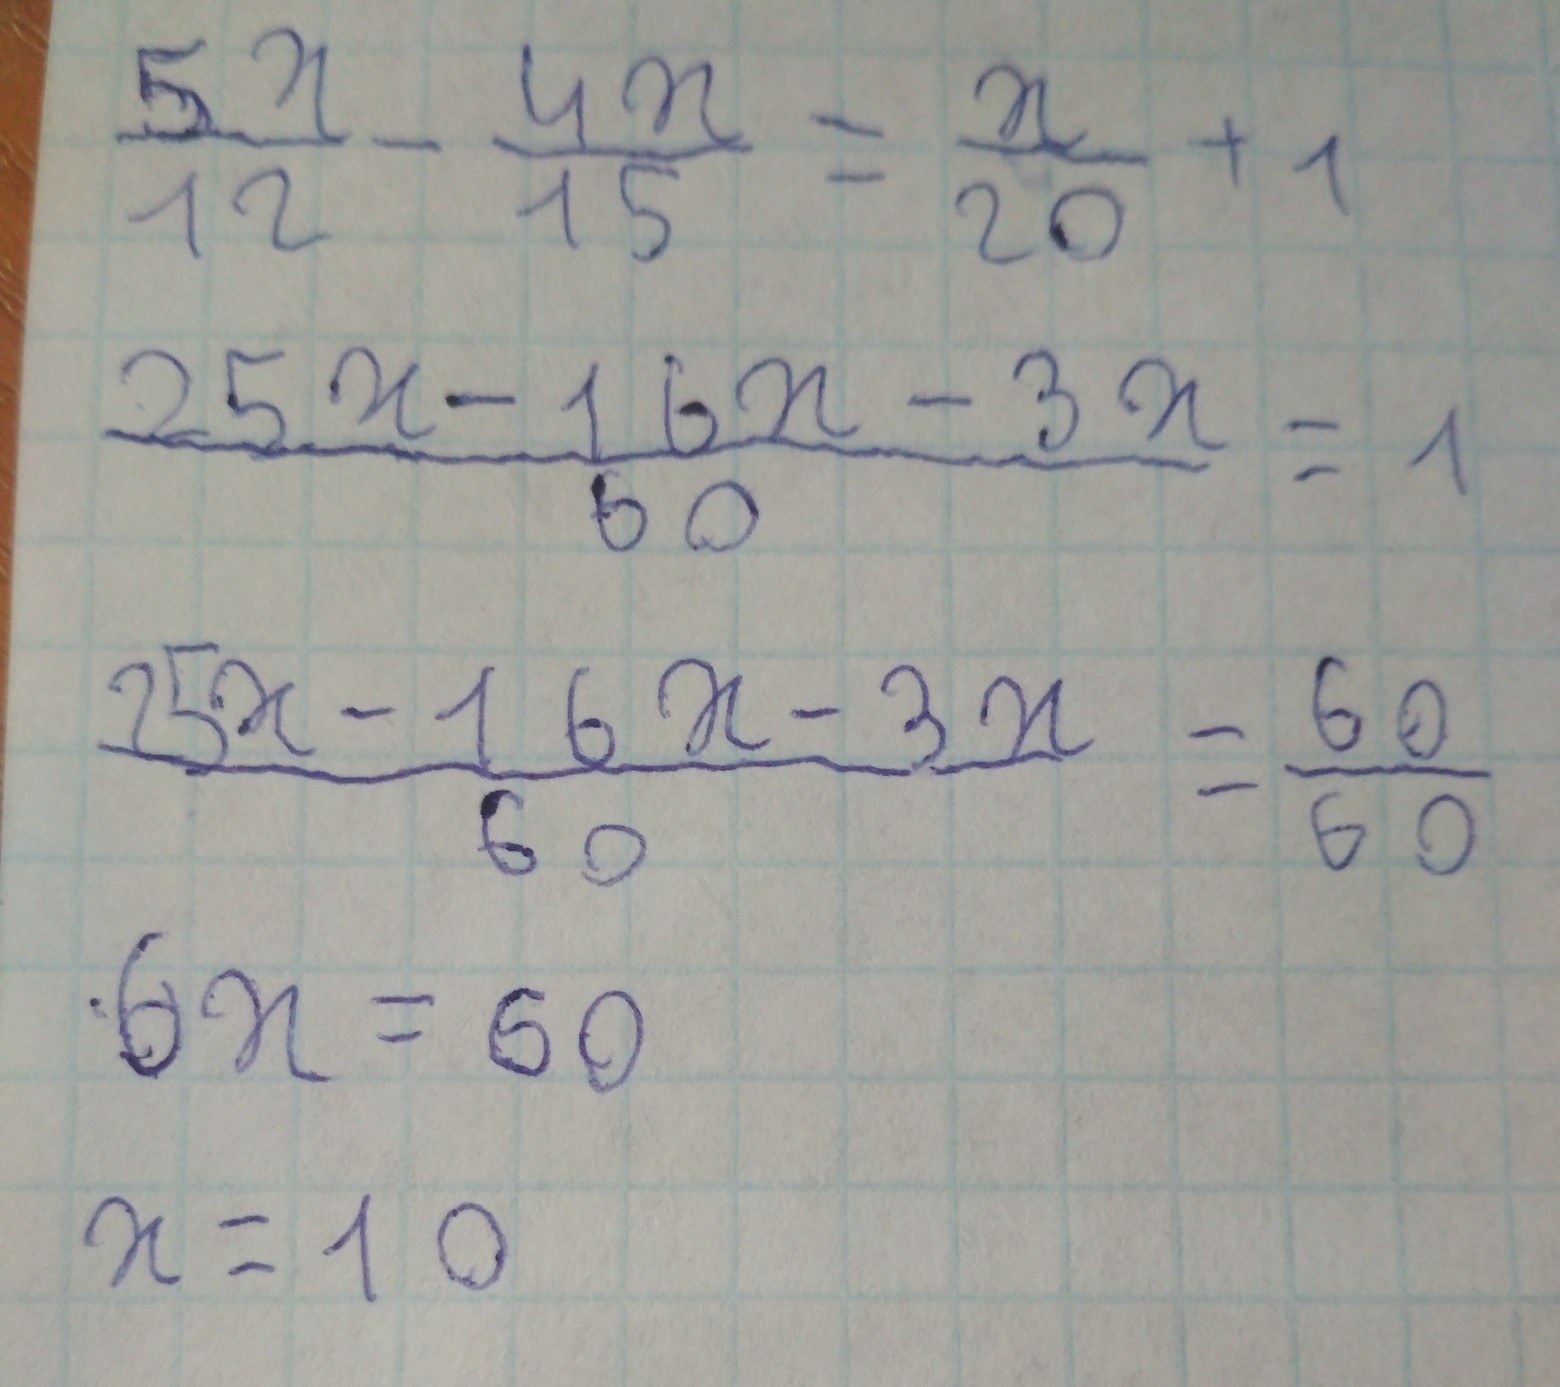 5x/12 - 4x/15 = x/20 + 1
25x - 16x - 3x/60 = 1
25x - 16x - 3x/60 = 60/60
6x = 60
x = 10